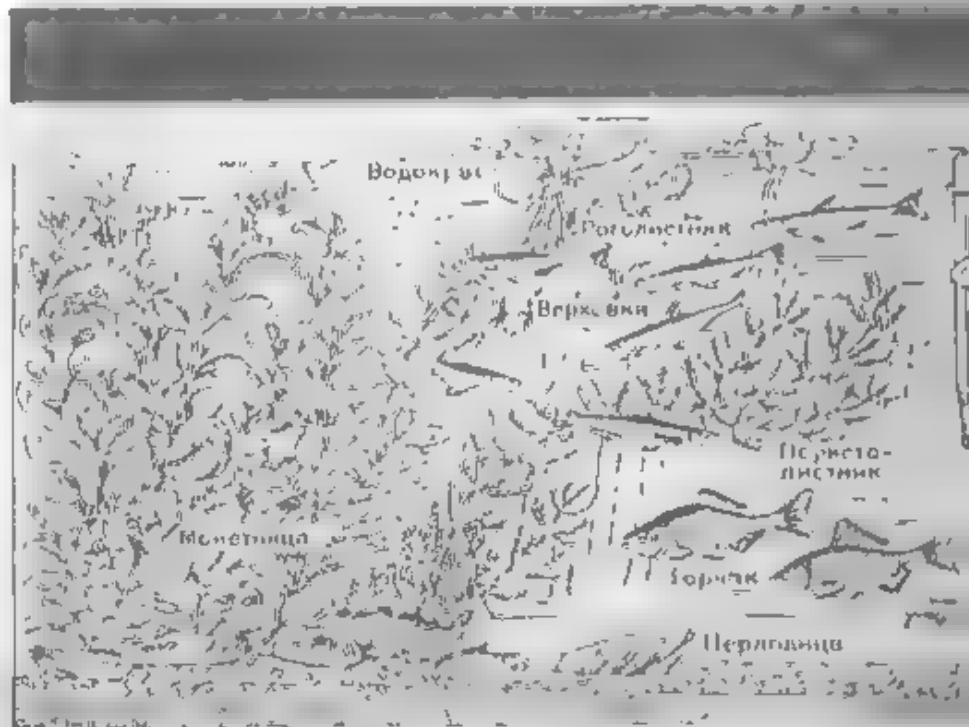 Водокрас
Роголистник
Верховки
Перисто-
листник
Монетница
Горчак
Перловица